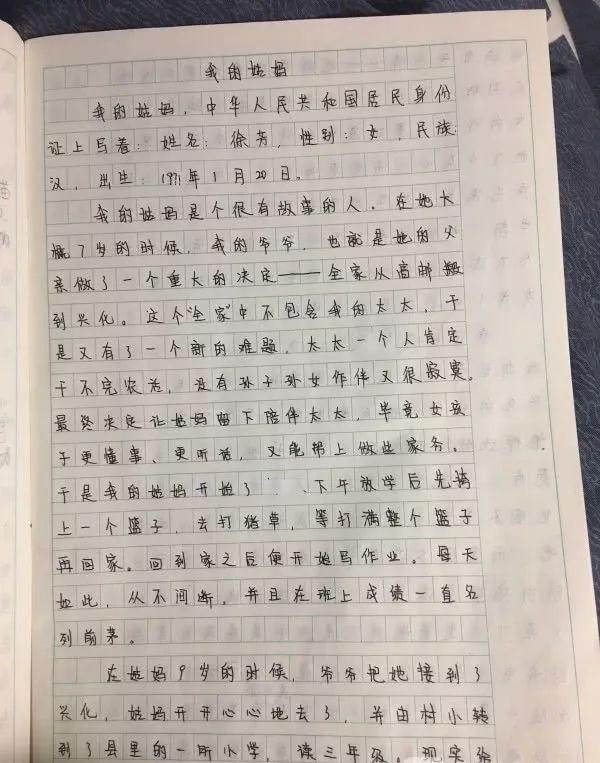 我的姑妈
我的姑妈，中华人民共和国居民身份
证上写着：姓名：徐芳，性别：女，民族：
汉，出生：1971年1月20日。
我的姑妈是个很有故事的人。在她大
概7岁的时候，我的爷爷，也就是她的父
亲做了一个重大的决定——全家从高邮搬
到兴化。这个“全家”中不包含我的太太，于
是又有了一个新的难题，太太一个人肯定
干不完农活，没有孙子孙女作伴又很寂寞。
最终决定让姑妈留下陪伴太太，毕竟女孩
子更懂事、更听话，又能帮上做些家务。
于是我的姑妈开始了 、下午放学后先骑
上一个篮子，去打猪草，等打满整个篮子
再回家。回到家之后便开始写作业。每天
如此，从不间断，并且在班上成绩一直名
列前茅。
在姑妈9岁的时候，爷爷把她接到了
兴化，姑妈开开心心地去了，并由村小转
到了县里的一所小学，读三年级。现实给